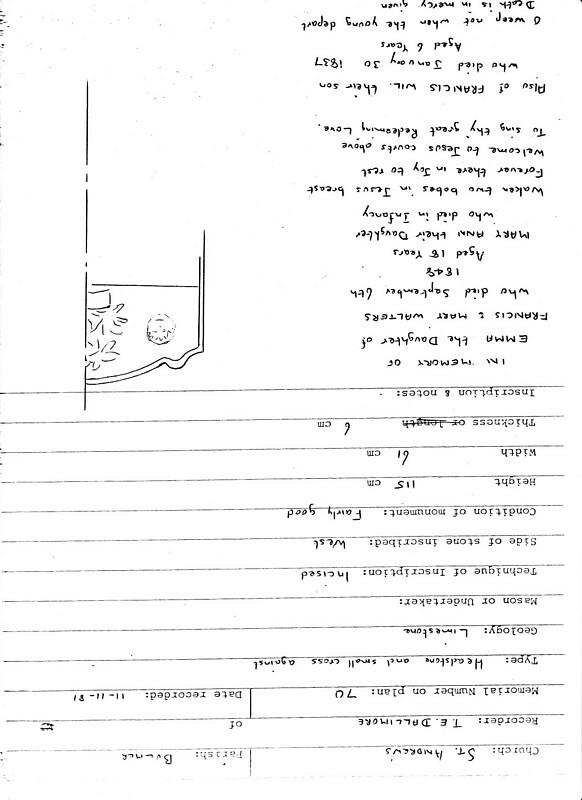 Church: ST. ANDREWS Parish: BULMER
Recorder: T.E. DALLIMORE of
Memorial Number on plan: 70 Date recorded: 11-11-81
Type: Headstone and small cross against
Geology: Limestone
Mason or Undertaker:
Technique of Inscription: Incised
Side of stone inscribed: West
Condition of monument: Fairly good
Height 115 cm
Width 61 cm
Thickness or length 6 cm
Inscription & notes:
IN MEMORY OF
EMMA the Daughter of
FRANCIS & MARY WALTERS
who died September 6th
1848
Aged 18 Years
MARY ANN their Daughter
who died in Infancy
Waken two babes in Jesus breast
Forever there in Joy to rest
Welcome to Jesus courts above
To sing thy great Redeeming Love.
Also of FRANCIS WIL. their son
who died January 30 1837
Aged 6 Years
O weep not when the young depart
Death is in mercy given